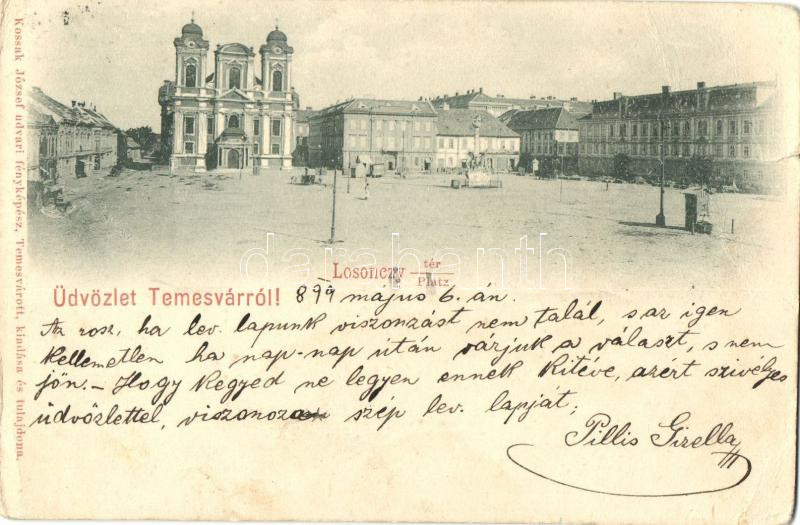 Kossak József udvari fényképész, Temesvárott, kiadása és tulajdona.
darabanth
Losonczy tér
Platz
Üdvözlet Temesvárról! 899 május 6. án.
Az rosz, ha lev. lapunk viszonzást nem talál, s az igen
kellemetlen ha nap-nap után várjuk a választ, s nem
jön. – Hogy Kegyed ne legyen ennek kitéve, azért szivélyes
üdvözlettel, viszonozom szép lev. lapját;
Pillis Gizella